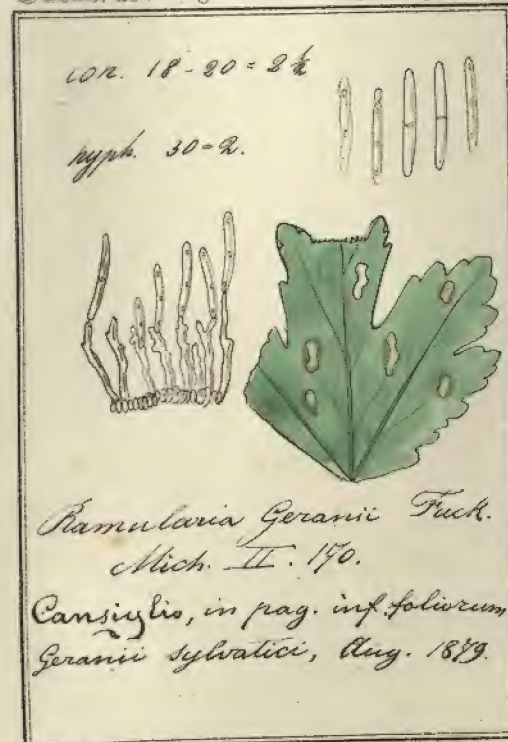 con. 18-20=2½
hyph. 30=2.
Ramularia Geranii Fuck.
Mich. II. 170.
Cansiglio, in pag. inf. foliorum
Geranii sylvatici, Aug. 1879.